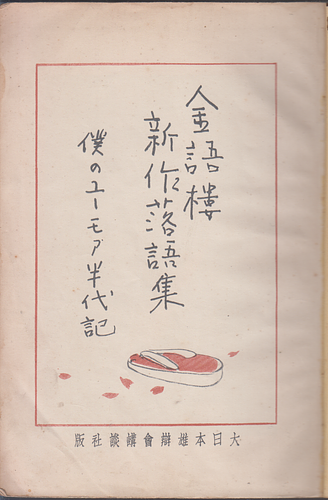 金語樓
新作落語集
僕のユーモア半代記
大日本雄辯會講談社版